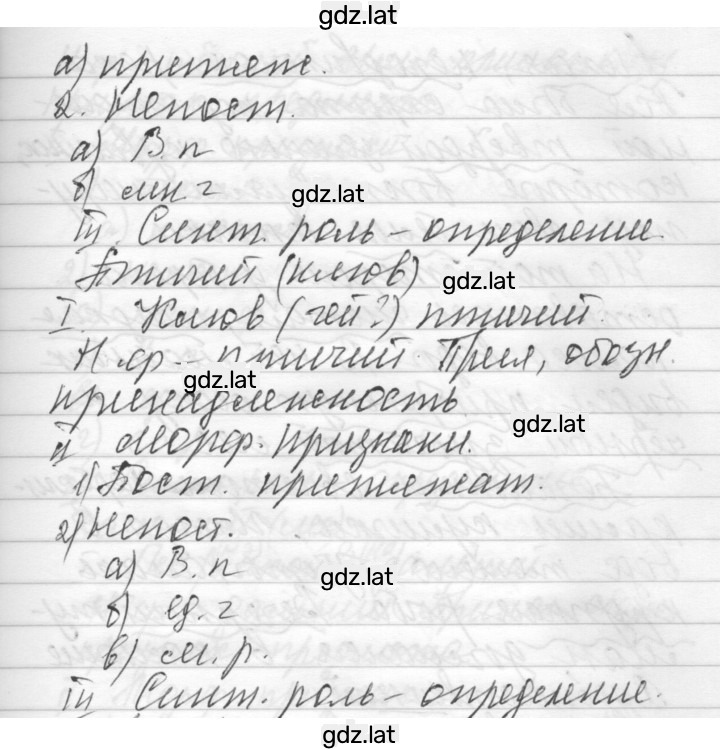 gdz.lat
а) притяж.
2. Непост.
а) В.п
б) мн.ч gdz.lat
III. Синт. роль – определение.
Птичий (клюв) gdz.lat
I. Клюв (чей?) птичий.
Н.ф. – птичий. Прил., обозн.
gdz.lat
принадлежность
gdz.lat
II Морф. признаки.
1) Пост. притяжат.
2) Непост.
а) В.п gdz.lat
б) ед.ч
в) м.р.
III Синт. роль – определение.
gdz.lat